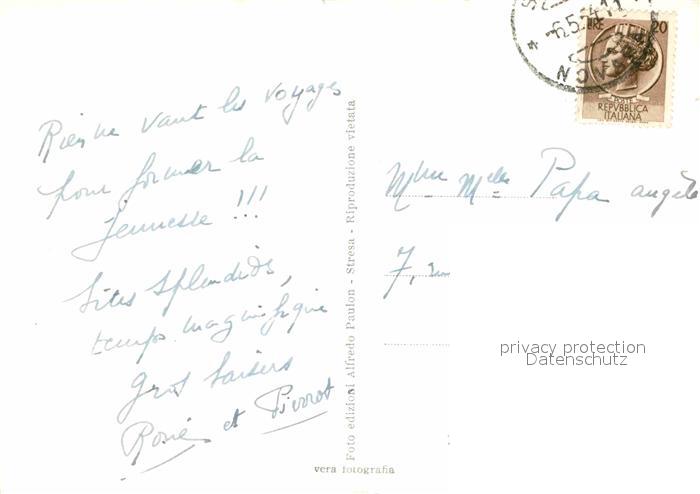 Rien ne vaut les voyages
pour former la
jeunesse !!!
Sites splendides,
temps magnifique
Gros baisers
et Pierrot
Foto edizioni Alfredo Paulon - Stresa - Riproduzione vietata
vera fotografia
6.5.54.11
NOVARA
20
LIRE
POSTE
REPVBBLICA
ITALIANA
Mme Melle Papa angèle
7, rue
privacy protection
Datenschutz